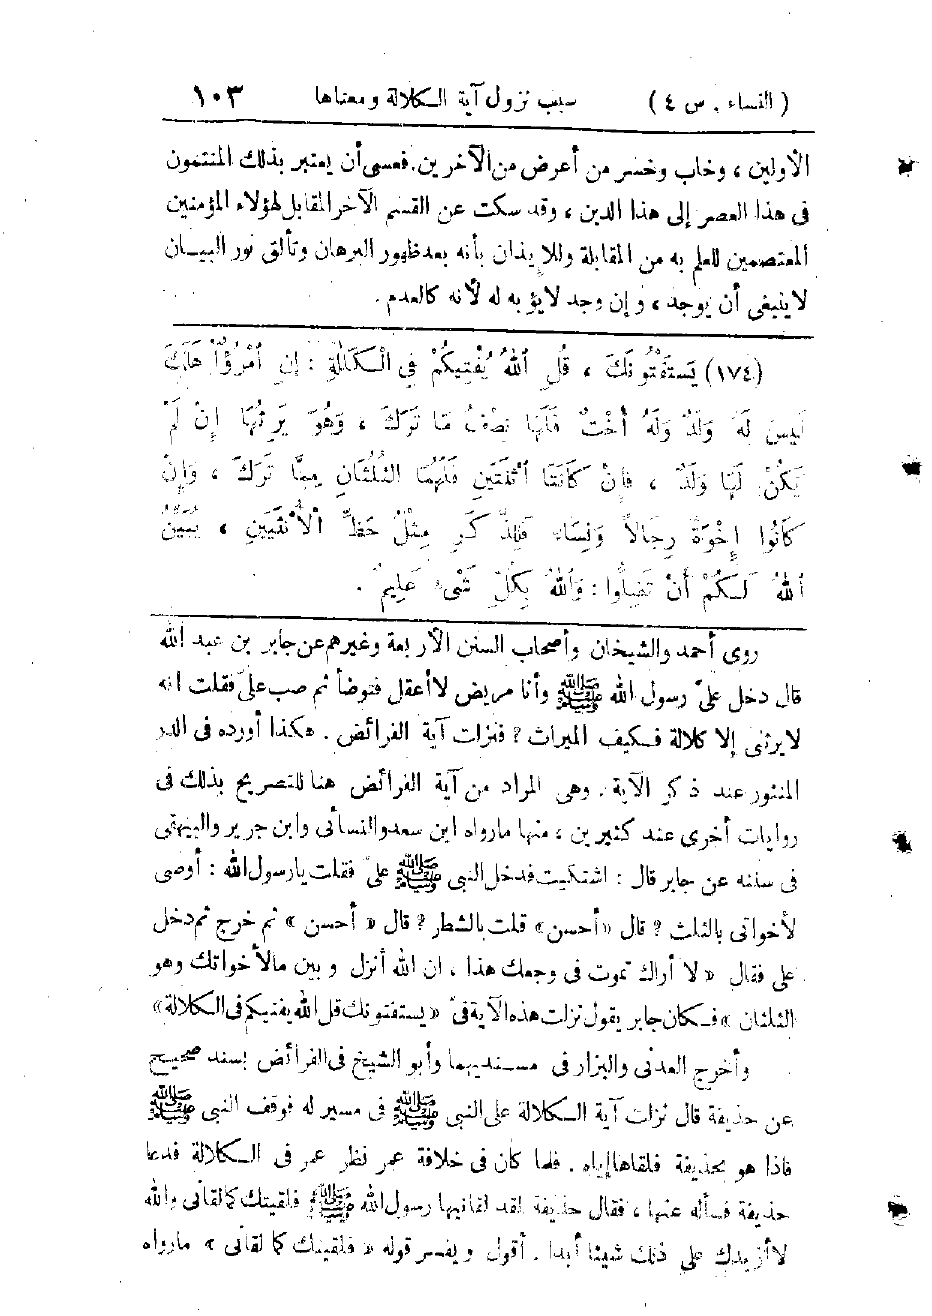 ( النساء . س ٤ ) سبب نزول آية الكلالة ومعناها ١٠٣
الأولين ، وخاب وخسر من أعرض من الآخرين . فعسى أن يعتبر بذلك المنتمون
فى هذا العصر إلى هذا الدين ، وقد سكت عن القسم الآخر المقابل لهؤلاء المؤمنين
المعتصمين للعلم به من المقابلة وللايذان بأنه بعد ظهور البرهان وتألق نور البيان
لا ينبغى أن يوجد ، وإن وجد لا يؤبه له لأنه كالعدم .
(١٧٤) يَسْتَفْتُونَكَ ، قُلِ اللهُ يُفْتِيكُمْ فِي الْكَلَالَةِ : إِنِ امْرُؤٌا هَلَكَ
لَيْسَ لَهُ وَلَدٌ وَلَهُ أُخْتٌ فَلَهَا نِصْفُ مَا تَرَكَ ، وَهُوَ يَرِثُهَا إِنْ لَمْ
يَكُنْ لَهَا وَلَدٌ ، فَإِنْ كَانَتَا اثْنَتَيْنِ فَلَهُمَا الثُّلُثَانِ مِمَّا تَرَكَ ، وَإِنْ
كَانُوا إِخْوَةً رِجَالاً وَنِسَاءً فَلِلذَّكَرِ مِثْلُ حَظِّ الْأُنْثَيَيْنِ ، يُبَيِّنُ
اللهُ لَكُمْ أَنْ تَضِلُّوا : وَاللهُ بِكُلِّ شَىْءٍ عَلِيمٌ .
روى أحمد والشيخان وأصحاب السنن الأربعة وغيرهم عن جابر بن عبد الله
قال دخل علىّ رسول الله ﷺ وأنا مريض لا أعقل فتوضأ ثم صب علىّ فقلت انه
لا يرثنى إلا كلالة فكيف الميراث ؟ فنزلت آية الفرائض . هكذا أورده فى الدر
المنثور عند ذكر الآية . وهى المراد من آية الفرائض هنا للتصريح بذلك فى
روايات أخرى عند كثيرين ، منها ما رواه ابن سعد والنسائى وابن جرير والبيهقى
فى سننه عن جابر قال : اشتكيت فدخل النبى ﷺ علىّ فقلت يا رسول الله : أوصى
لأخواتى بالثلث ؟ قال « أحسن » قلت بالشطر ؟ قال « أحسن » ثم خرج ثم دخل
على فقال « لا أراك تموت فى وجعك هذا ، ان الله أنزل وبين ما لأخواتك وهو
الثلثان » فكان جابر يقول نزلت هذه الآية فىّ « يستفتونك قل الله يفتيكم فى الكلالة »
وأخرج العدنى والبزار فى مسنديهما وأبو الشيخ فى الفرائض بسند صحيح
عن حذيفة قال نزلت آية الكلالة على النبى ﷺ فى مسير له فوقف النبى ﷺ
فاذا هو بحذيفة فلقاها إياه . فلما كان فى خلافة عمر نظر عمر فى الكلالة فدعا
حذيفة فسأله عنها ، فقال حذيفة لقد لقانيها رسول الله ﷺ فلقيتك كما لقانى والله
لا أزيدك على ذلك شيئا أبدا . أقول ويفسر قوله « فلقيتك كما لقانى » ما رواه